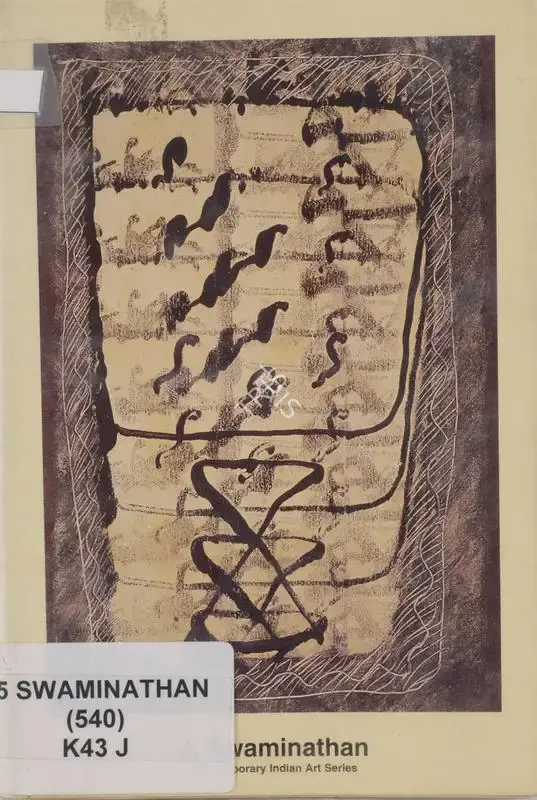 5 SWAMINATHAN
(540)
K43 J
waminathan
porary Indian Art Series